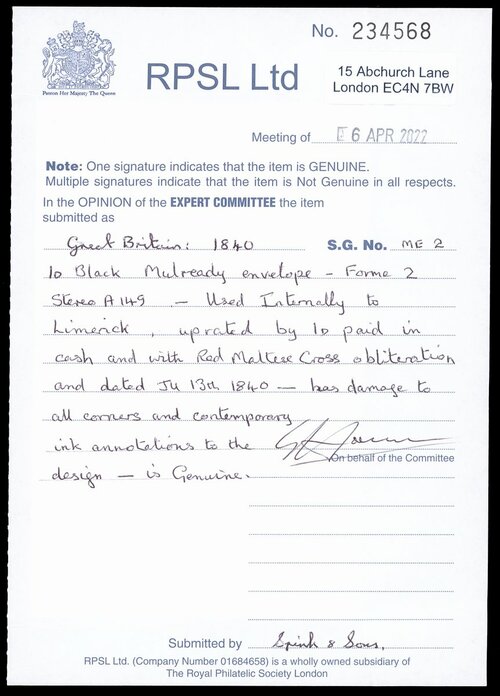 No. 234568
Patron Her Majesty The Queen
RPSL Ltd
15 Abchurch Lane
London EC4N 7BW
Meeting of 6 APR 2022
Note: One signature indicates that the item is GENUINE.
Multiple signatures indicate that the item is Not Genuine in all respects.
In the OPINION of the EXPERT COMMITTEE the item
submitted as
Great Britain: 1840 S.G. No. ME 2
1D Black Mulready envelope - Forme 2
Stereo A149 - Used Internally to
Limerick, uprated by 1D paid in
cash and with Red Maltese Cross obliteration
and dated JU 13th 1840 - has damage to
all corners and contemporary
ink annotations to the
On behalf of the Committee
design - is Genuine.
Submitted by Spink & Sons,
RPSL Ltd. (Company Number 01684658) is a wholly owned subsidiary of
The Royal Philatelic Society London